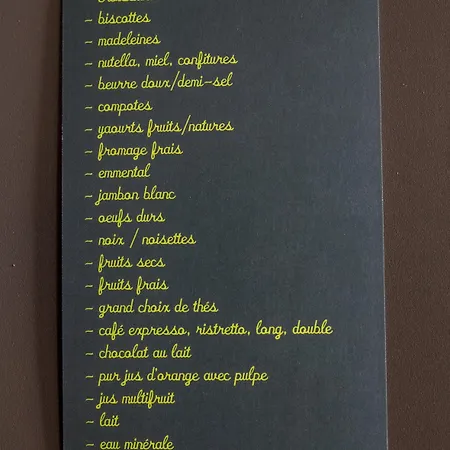 ~ biscottes
~ madeleines
~ nutella, miel, confitures
~ beurre doux/demi-sel
~ compotes
~ yaourts fruits/natures
~ fromage frais
~ emmental
~ jambon blanc
~ oeufs durs
~ noix / noisettes
~ fruits secs
~ fruits frais
~ grand choix de thés
~ café expresso, ristretto, long, double
~ chocolat au lait
~ pur jus d'orange avec pulpe
~ jus multifruit
~ lait
~ eau minérale